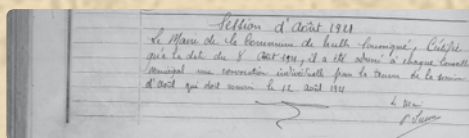 Session d'Août 1921
Le Maire de la Commune de Certifie
qu'à la date du 8 Août 1921, il a été adressé à chaque Conseiller
municipal une convocation individuelle pour la tenue de la session
d'août qui doit s'ouvrir le 12 Août 1921
Le Maire